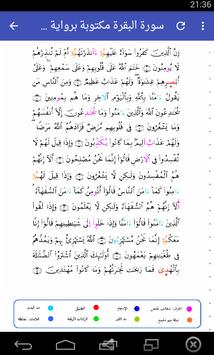 21:36
سورة البقرة مكتوبة برواية ...
إِنَّ الَّذِينَ كَفَرُوا سَوَاءٌ عَلَيْهِمْ ءَآنذَرْتَهُمْ أَمْ لَمْ تُنذِرْهُمْ
لَا يُؤْمِنُونَ خَتَمَ اللَّهُ عَلَى قُلُوبِهِمْ وَعَلَى سَمْعِهِمْ وَعَلَى
أَبْصَارِهِمْ غِشَاوَةٌ وَلَهُمْ عَذَابٌ عَظِيمٌ وَمِنَ النَّاسِ مَنْ
يَقُولُ ءَامَنَّا بِاللَّهِ وَبِالْيَوْمِ الْآخِرِ وَمَا هُم بِمُؤْمِنِينَ
يُخَادِعُونَ اللَّهَ وَالَّذِينَ ءَامَنُوا وَمَا يُخَادِعُونَ إِلَّا أَنفُسَهُمْ وَمَا
يَشْعُرُونَ فِي قُلُوبِهِم مَّرَضٌ فَزَادَهُمُ اللَّهُ مَرَضًا
وَلَهُمْ عَذَابٌ أَلِيمٌ بِمَا كَانُوا يُكَذِّبُونَ وَإِذَا قِيلَ لَهُمْ لَا
تُفْسِدُوا فِي الْأَرْضِ قَالُوا إِنَّمَا نَحْنُ مُصْلِحُونَ أَلَا إِنَّهُمْ
هُمُ الْمُفْسِدُونَ وَلَكِن لَّا يَشْعُرُونَ وَإِذَا قِيلَ لَهُمْ
ءَامِنُوا كَمَا ءَامَنَ النَّاسُ قَالُوا أَنُومِنُ كَمَا ءَامَنَ السُّفَهَاءُ
أَلَا إِنَّهُمْ هُمُ السُّفَهَاءُ وَلَكِن لَّا يَعْلَمُونَ وَإِذَا لَقُوا
الَّذِينَ ءَامَنُوا قَالُوا ءَامَنَّا وَإِذَا خَلَوْا إِلَى شَيَاطِينِهِمْ
قَالُوا إِنَّا مَعَكُمْ إِنَّمَا نَحْنُ مُسْتَهْزِءُونَ اللَّهُ يَسْتَهْزِئُ بِهِمْ وَيَمُدُّهُمْ
فِي طُغْيَانِهِمْ يَعْمَهُونَ أُولَئِكَ الَّذِينَ اشْتَرَوُا الضَّلَالَةَ
بِالْهُدَى فَمَا رَبِحَت تِّجَارَتُهُمْ وَمَا كَانُوا مُهْتَدِينَ